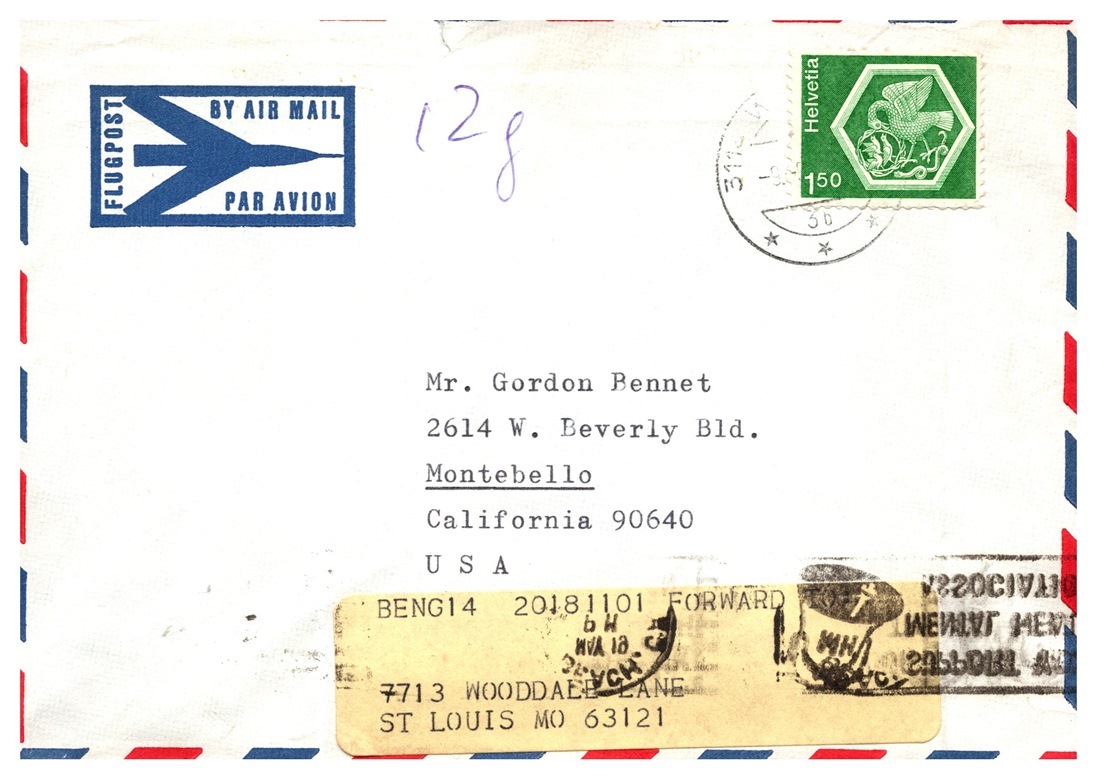 FLUGPOST
BY AIR MAIL
PAR AVION
12g
Helvetia
1.50
3b
Mr. Gordon Bennet
2614 W. Beverly Bld.
Montebello
California 90640
U S A
BENG14 20181101 FORWARD
7713 WOODDALE LANE
ST LOUIS MO 63121
SUPPORT
MENTAL